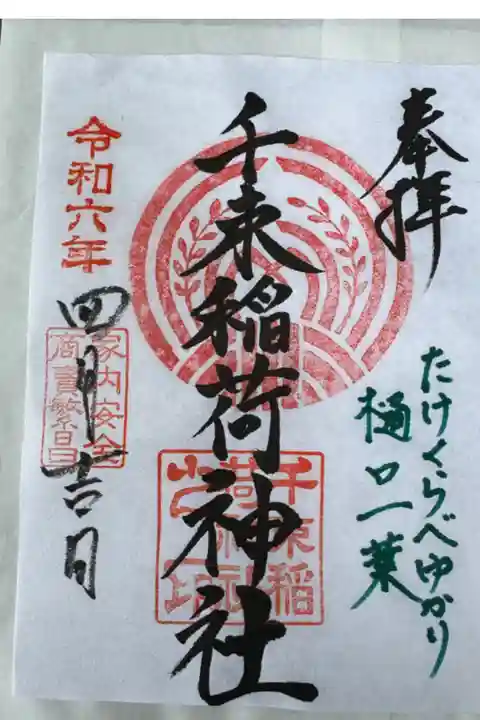 奉拝
たけくらべゆかり
樋口一葉
千束稲荷神社
千束稲荷神社之印
令和六年
四月吉日
家内安全
商売繁昌